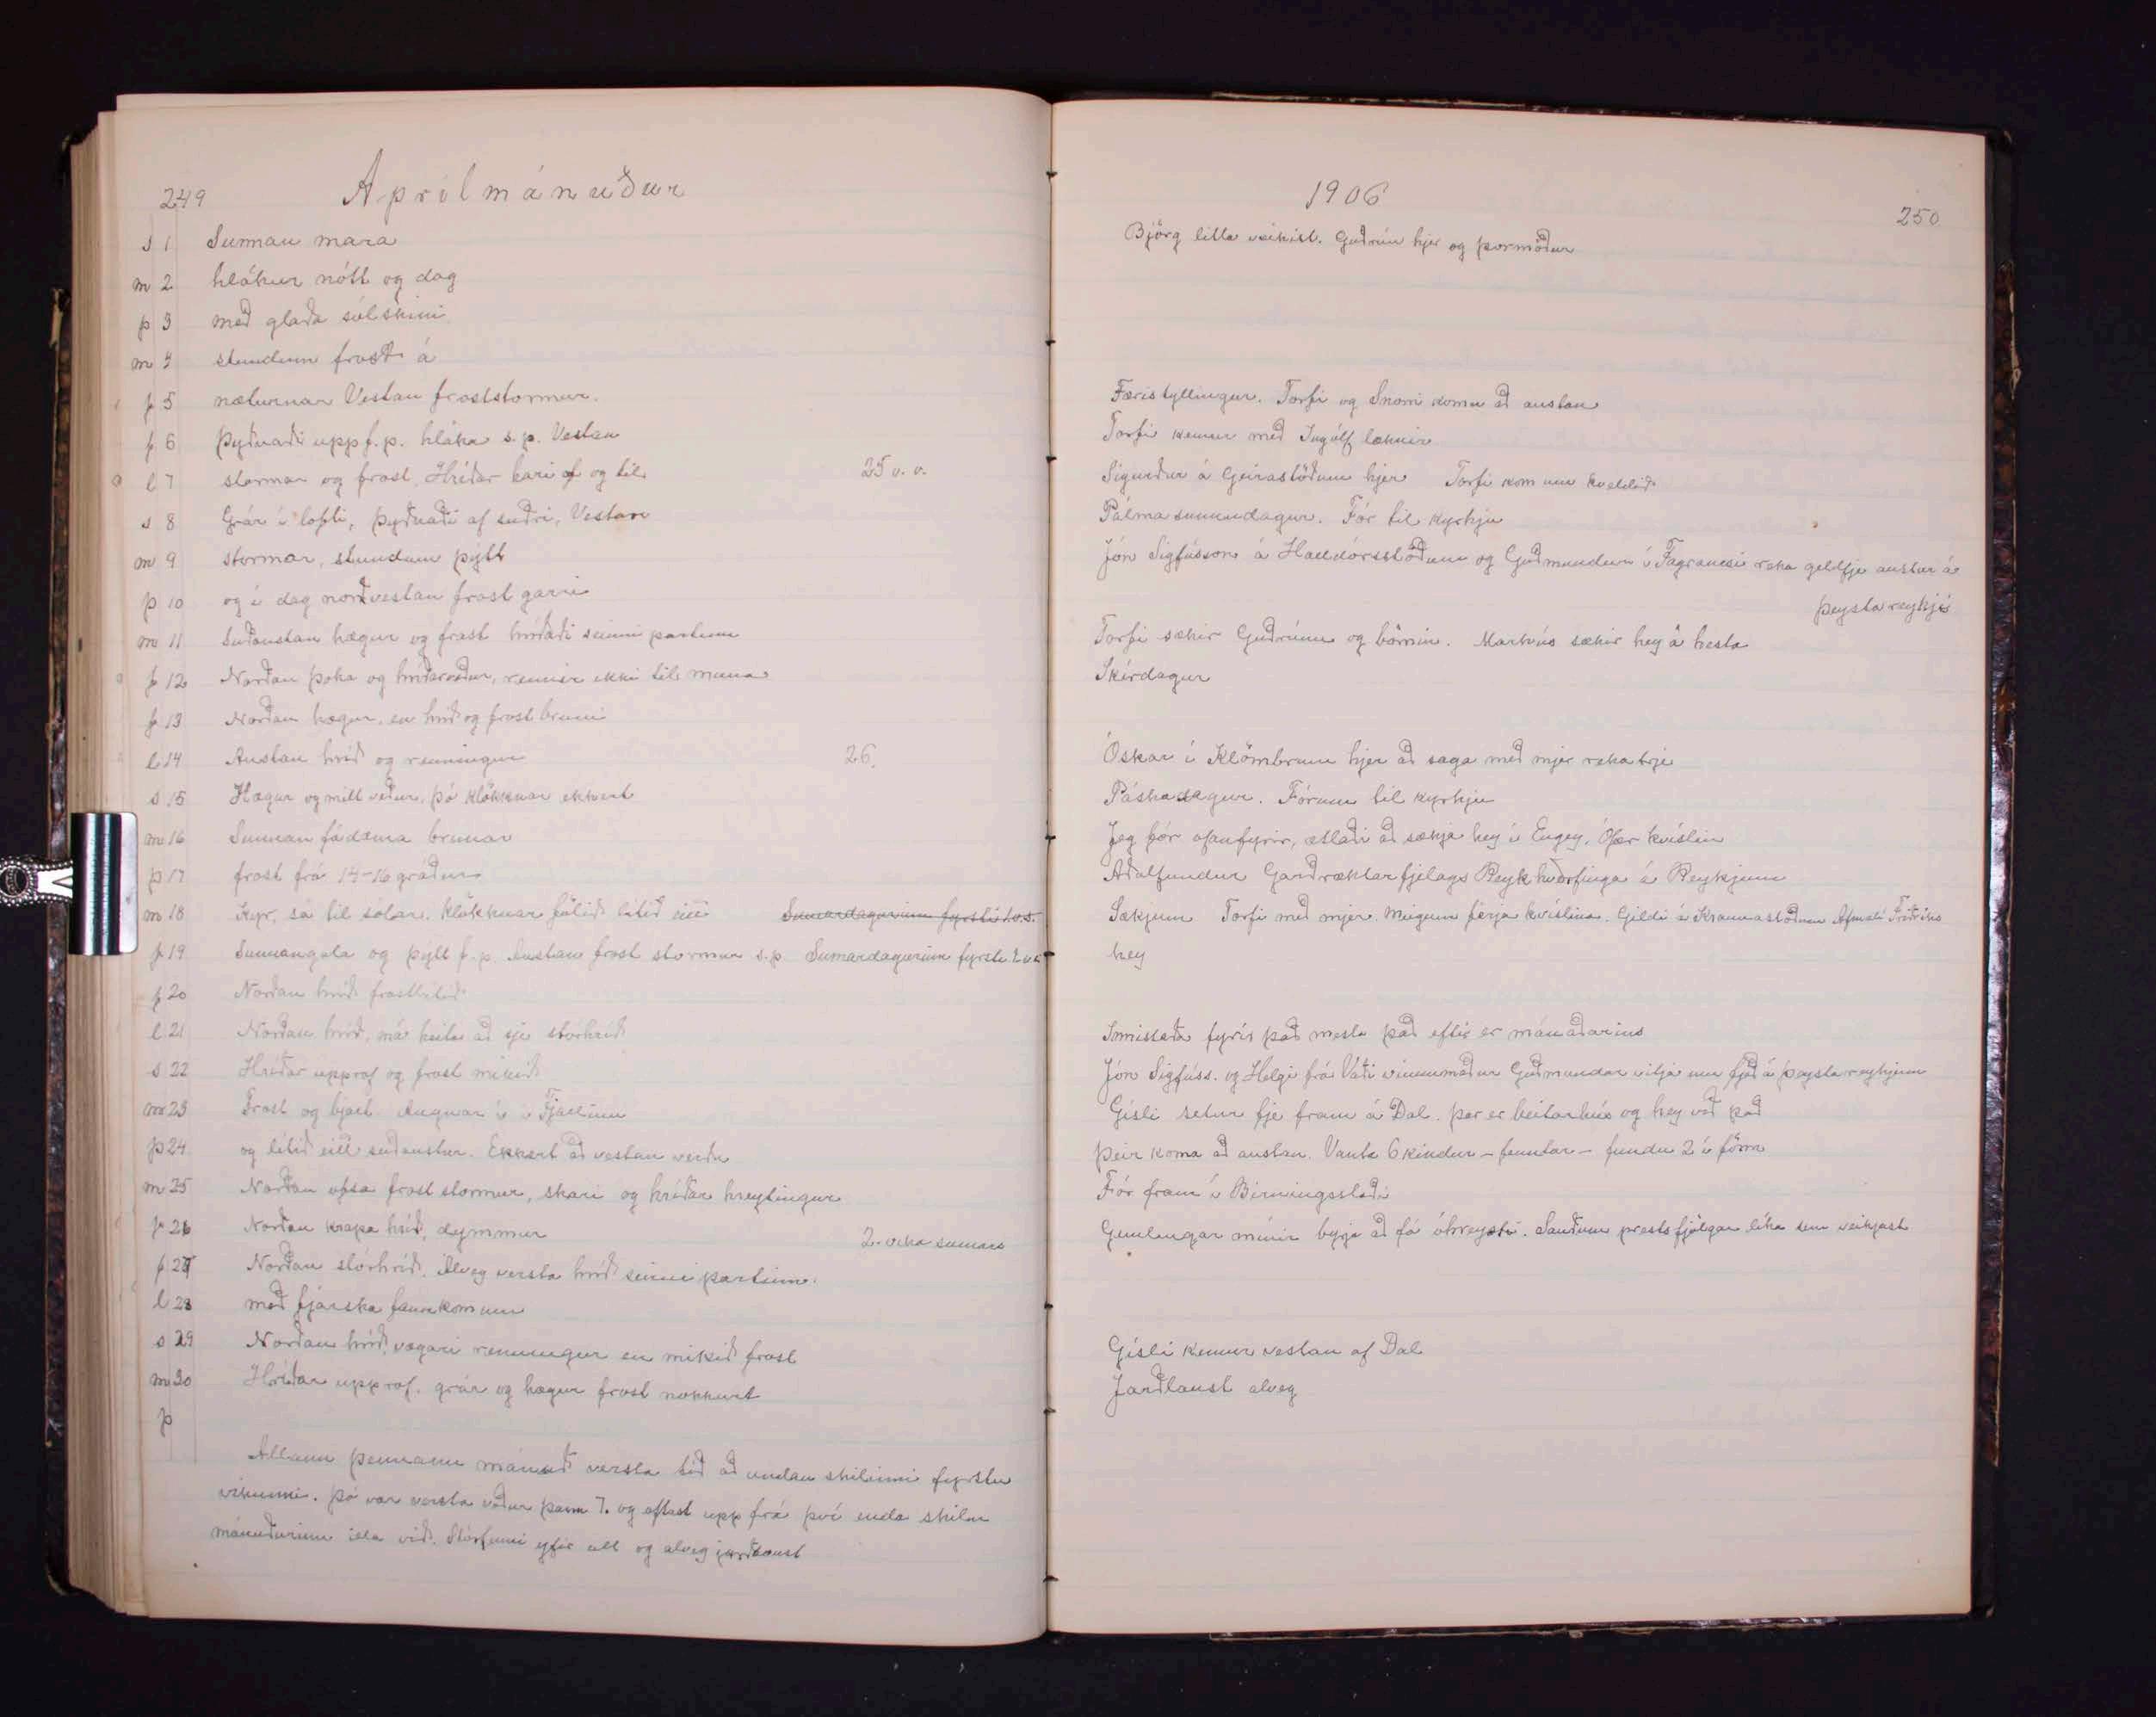 249
Aprílmánuður
s 1 Sunnan mara
m 2 hlákur nótt og dag
þ 3 með glaða sólskini
m 4 stundum frost á
f 5 næturnar Vestan froststormur.
f 6 Þyðnaði upp f.p. hláka s.p. Vestan
l 7 stormar og frost, Hríðar kari af og til 25 v. v.
s 8 Grár í lofti, þyðnaði af suðri, Vestan
m 9 stormar, stundum þýtt
þ 10 og í dag norðvestan frost garri
m 11 Suðaustan hægur og frost hríðaði seinni partinn
f 12 Norðan þoka og hríðarveður, rennir ekki til muna
f 13 Norðan hægur, en hríð og frost bruni
l 14 Austan hríð og renningur 26.
s 15 Hægur og milt veður, þó klökknar ekkert
m 16 Sunnan fádæma brunar
þ 17 frost frá 14-16 gráður
m 18 Kyr, sá til sólar. Klökknar lítið eitt Sumardagurinn fyrsti 1. v. s.
f 19 Sunnangola og þýtt f.p. Austan frost stormur s.p. Sumardagurinn fyrsti 1. v. s.
f 20 Norðan hríð frostlítið
l 21 Norðan hríð, má heita að sje stórhríð
s 22 Hríðar upprof og frost mikið
m 23 Frost og bjart. Augnar í í Fjöllum
þ 24 og lítið eitt suðaustur. Ekkert að vestan verðu
m 25 Norðan ofsa frost stormur, skari og hríðar hreytingur
f 26 Norðan krapa hríð, dymmur 2. vika sumars
f 27 Norðan stórhríð. Alveg versta hríð seinni partinn.
l 28 með fjarska fannkomum
s 29 Norðan hríð, vægari renningur en mikið frost
m 30 Hríðar upprof. grár og hægur frost nokkurt
þ
Allann þennann mánuð versta tíð að undan skilinni fyrstu
vikunni. Þó var versta veður þann 7. og oftast upp frá því enda skilur
mánuðurinn illa við. Stórfenni yfir allt og alveg jarðlaust
1906
250
Björg litla veikist. Guðrún hjer og Þormóður
Færistyllingur. Torfi og Snorri koma að austan
Torfi kemur með Ingólf læknir
Sigurður á Geirastöðum hjer Torfi kom um kveldið
Pálmasunnudagur. Fór til kyrkju
Jón Sigfússon á Halldórsstöðum og Guðmundur í Fagranesi reka geldfje austur á
Þeystareykji
Torfi sækir Guðrúnu og börnin. Markús sækir hey á hesta
Skírdagur
Óskar í Klömbrum hjer að saga með mjer rekatrje
Páskadagur. Fórum til kyrkju
Jeg fór ofanfyrir, ætlaði að sækja hey í Engey. Ófær kvíslin
Aðalfundur Garðræktarfjelags Reykhverfinga á Reykjum
Sækjum Torfi með mjer. Meigum ferja kvíslina. Gildi á Kraunastöðum Afmæli Friðriks
hey
Innistaða fyrir það mesta það eftir er mánaðarins
Jón Sigfúss. og Helgi frá Vaði vinnumaður Guðmundar vitja um fjeð á Þeystareykjum
Gísli setur fje fram á Dal. þar er beitarhús og hey við það
Þeir koma að austan. Vanta 6 kindur - fenntar - fundu 2 í fönn
Fór fram í Birningsstaði
Gemlingar mínir byrja að fá óhreysti. Sauðum prests fjölgar líka sem veikjast
Gísli kemur vestan af Dal
Jarðlaust alveg